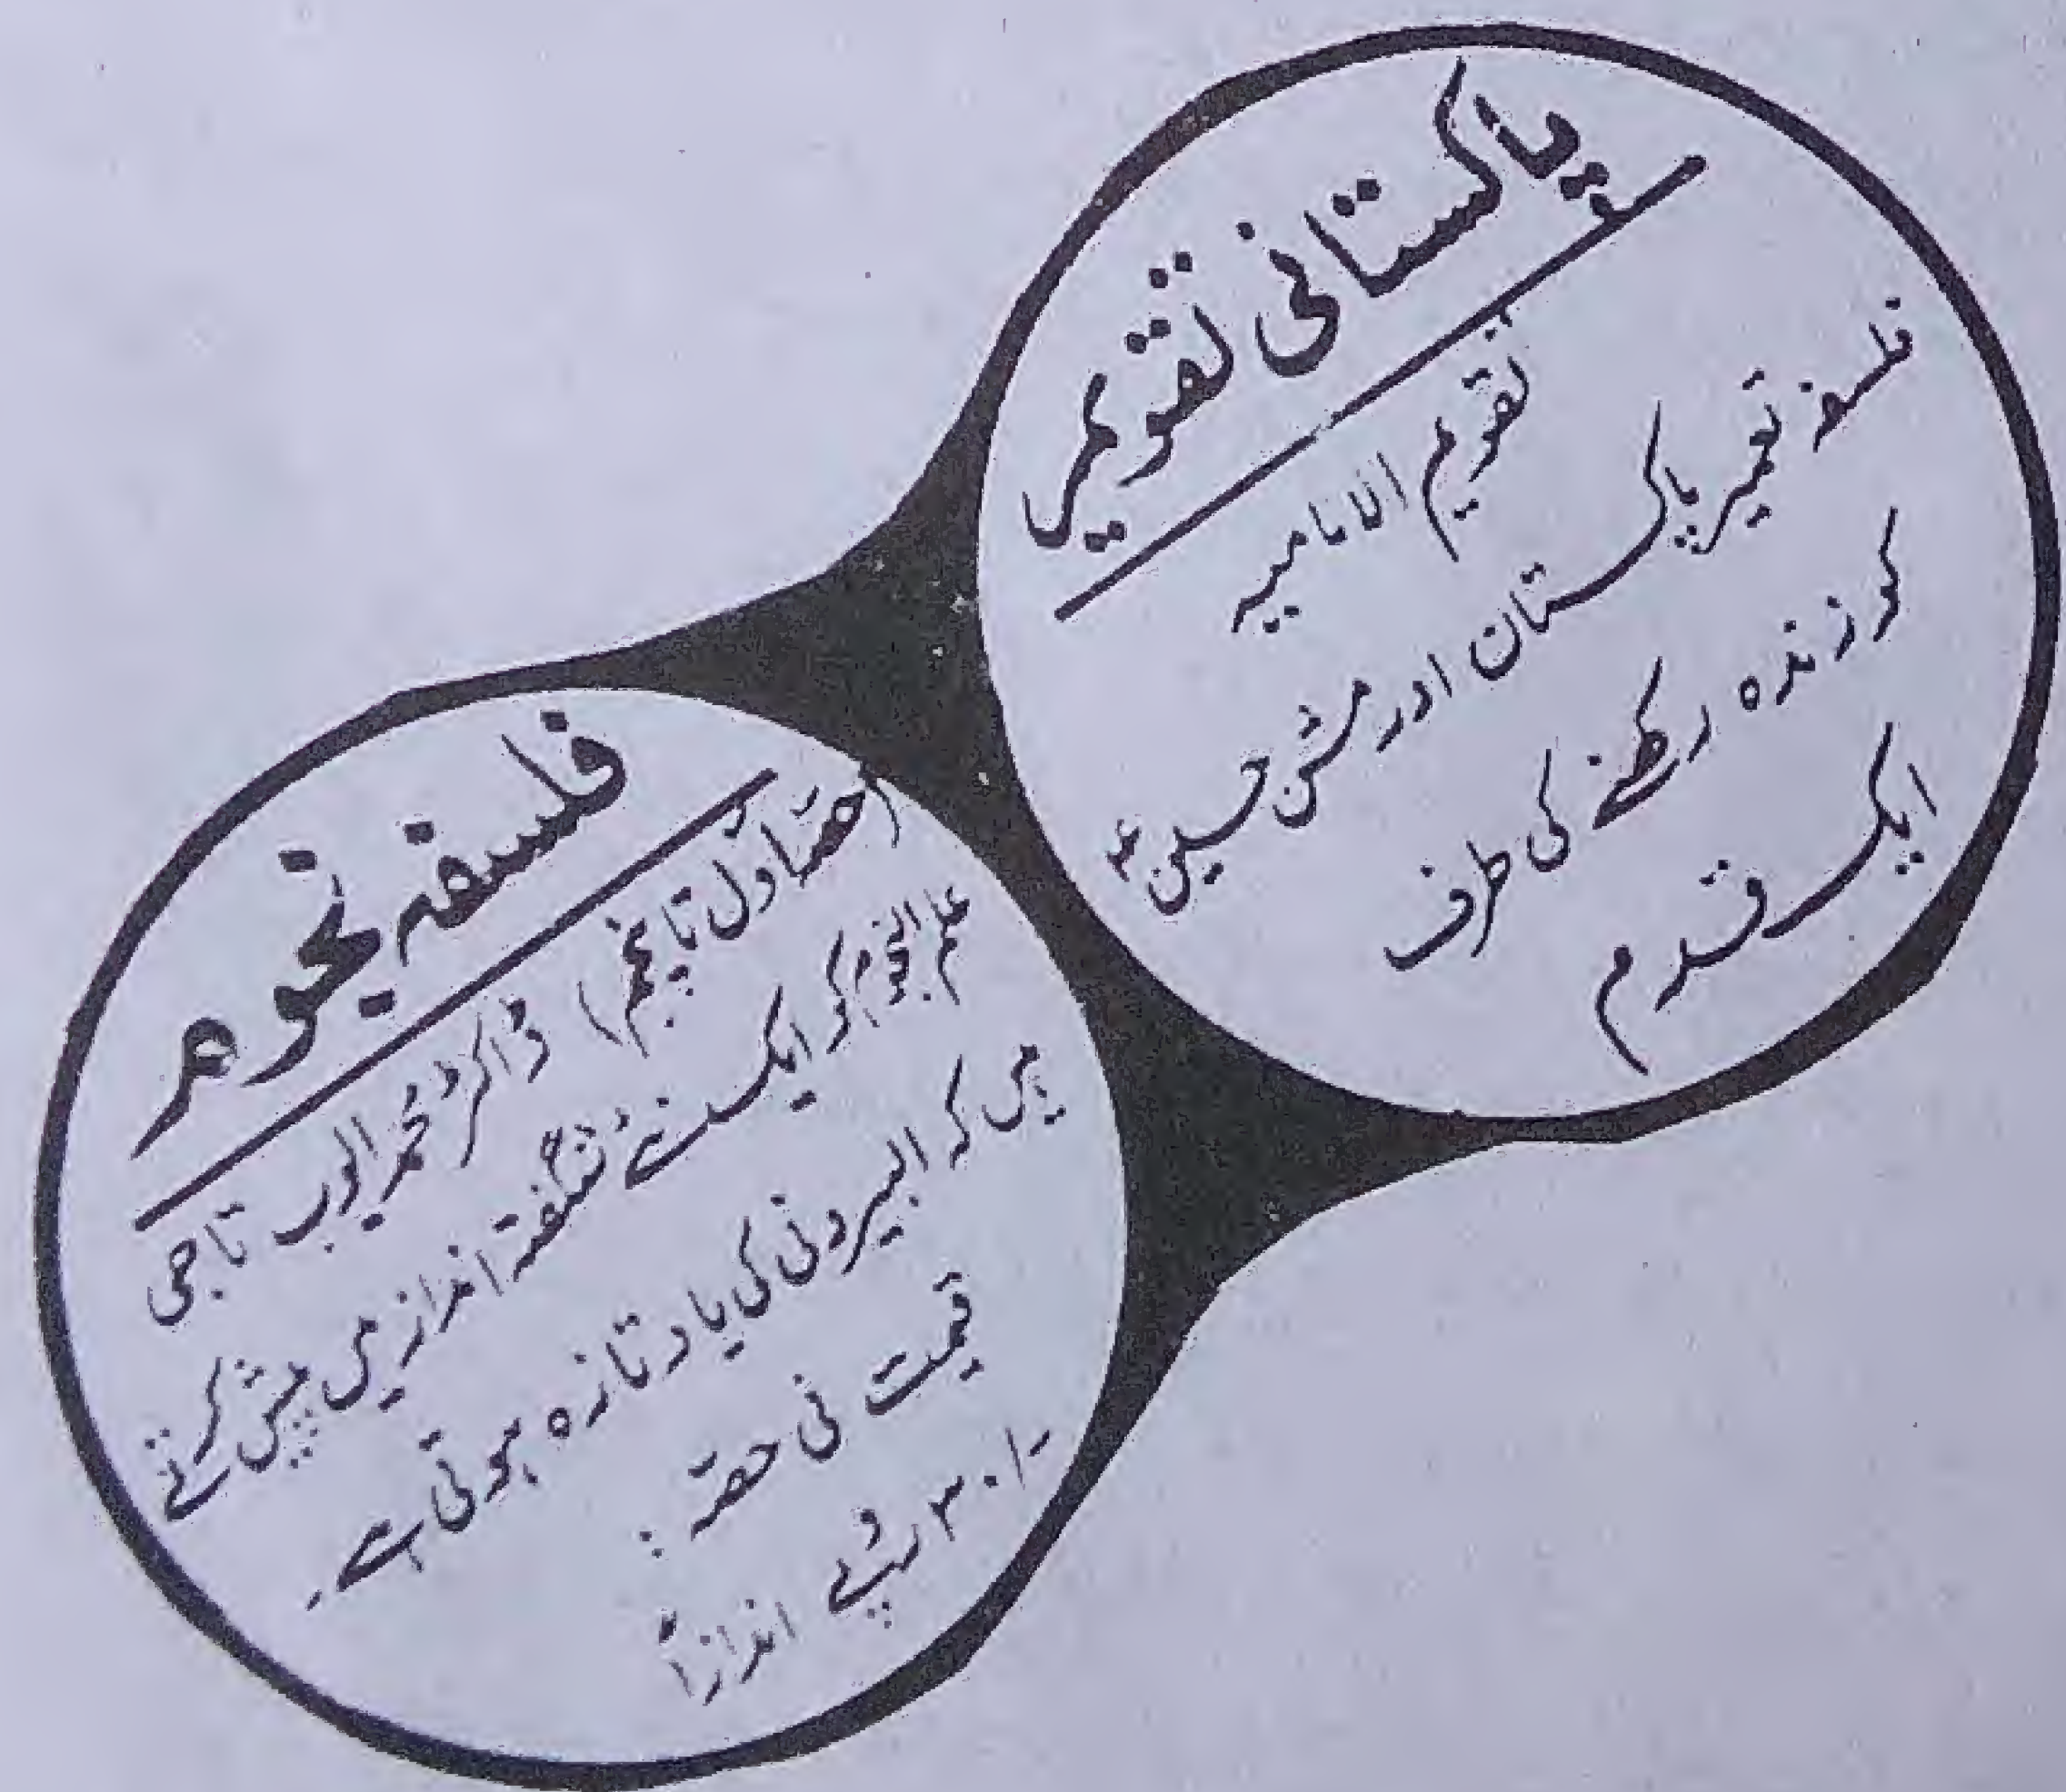 پاکستانی تقویم
تقویم الامامیہ
فلسفہ تعمیر پاکستان اور مشن حسینؑ
کو زندہ رکھنے کی طرف
ایک قدم
فلسفہ نجوم
(حصّہ اوّل تا پنجم) ڈاکٹر محمد ایوب تاجی
علم النجوم کو ایک نئے شگفتہ انداز میں پیش کرتے
ہیں کہ البیرونی کی یاد تازہ ہوتی ہے۔
قیمت فی حصّہ :
۳۰/- روپے اندازاً